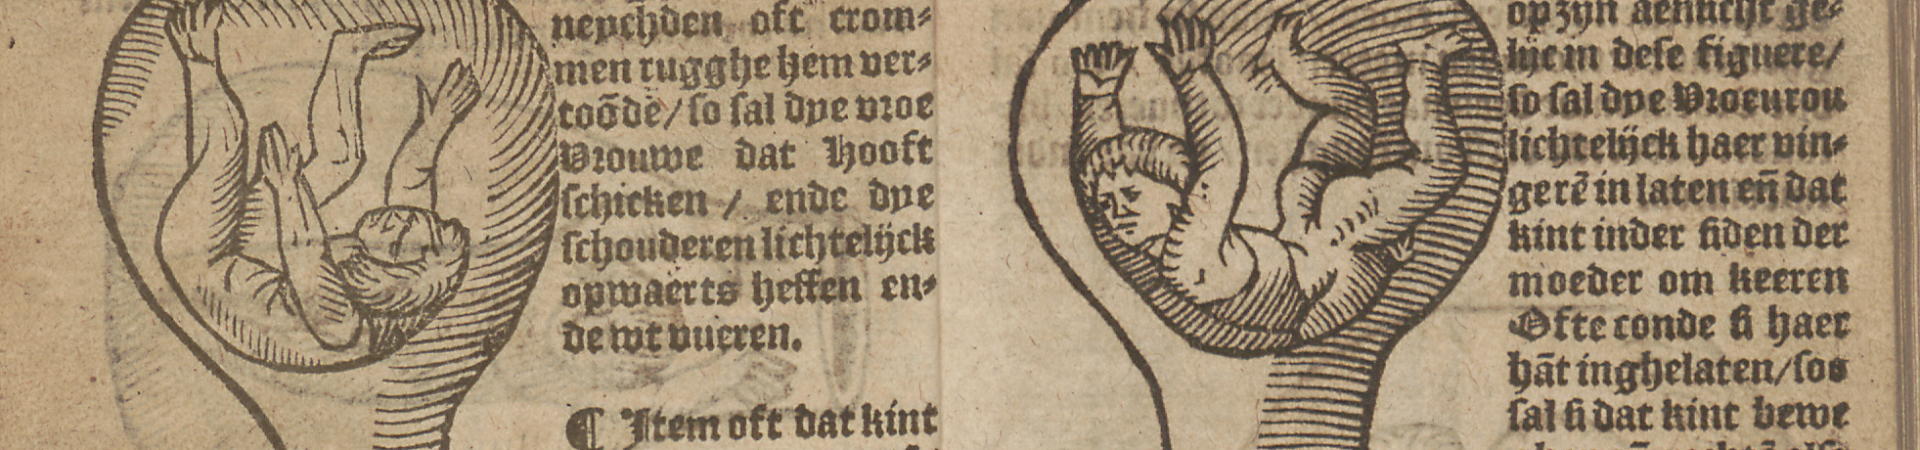 nepchden oft crom⸗
men rugghe hem ver⸗
toōde/so sal dye vroe
Vrouwe dat Hooft
schicken / ende dye
schouderen lichtelijck
opwaerts heffen en⸗
de wt vueren.
¶ Item oft dat kint
op zijn aensicht ge⸗
lijc in dese figuere/
so sal dye Vroeurou
lichtelijck haer vin⸗
gerē in laten eñ dat
kint inder siden der
moeder om keeren
Ofte conde si haer
hāt inghelaten/sos
sal si dat kint bewe